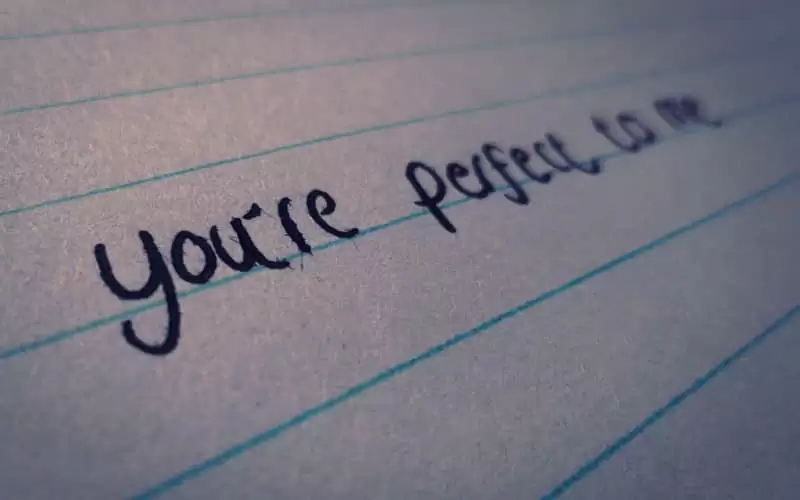 you're perfect to me